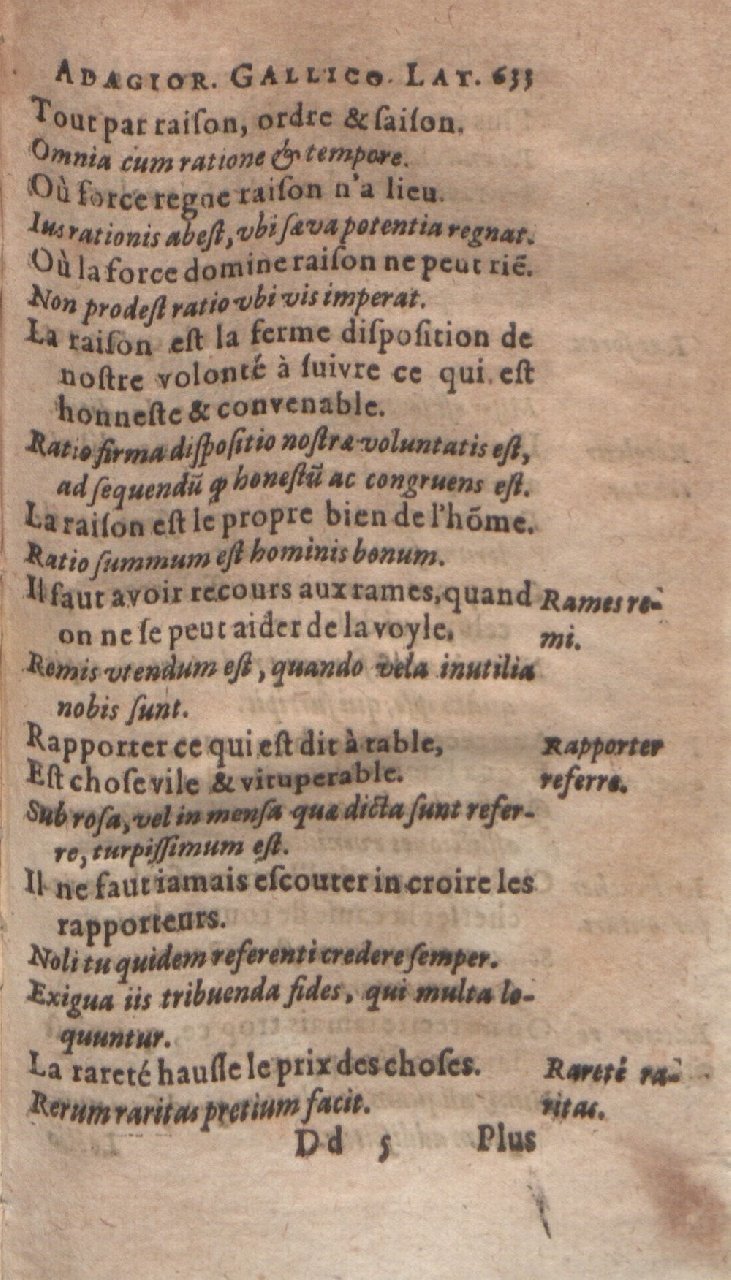 ADAGIOR. GALLICO. LAT. 633
Tout par raiſon, ordre & ſaiſon.
Omnia cum ratione & tempore.
Où force regne raiſon n'a lieu.
Ius rationis abeſt, vbi ſæva potentia regnat.
Où la force domine raiſon ne peut riē.
Non prodeſt ratio vbi vis imperat.
La raiſon eſt la ferme diſpoſition de
noſtre volonté à ſuivre ce qui eſt
honneſte & convenable.
Ratio firma diſpoſitio noſtræ voluntatis eſt,
ad ſequendū ꝙ honeſtū ac congruens eſt.
La raiſon eſt le propre bien de l'hōme.
Ratio ſummum eſt hominis bonum.
Il faut avoir recours aux rames, quand
on ne ſe peut aider de la voyle.
Rames re-
mi.
Remis vtendum eſt, quando vela inutilia
nobis ſunt.
Rapporter ce qui eſt dit à table,
Eſt choſe vile & vituperable.
Rapporter
referre.
Sub roſa, vel in menſa quæ dicta ſunt refer-
re, turpiſſimum eſt.
Il ne faut iamais eſcouter in croire les
rapporteurs.
Noli tu quidem referenti credere ſemper.
Exigua iis tribuenda fides, qui multa lo-
quuntur.
La rareté hauſſe le prix des choſes.
Rareté ra-
ritas.
Rerum raritas pretium facit.
Dd 5 Plus